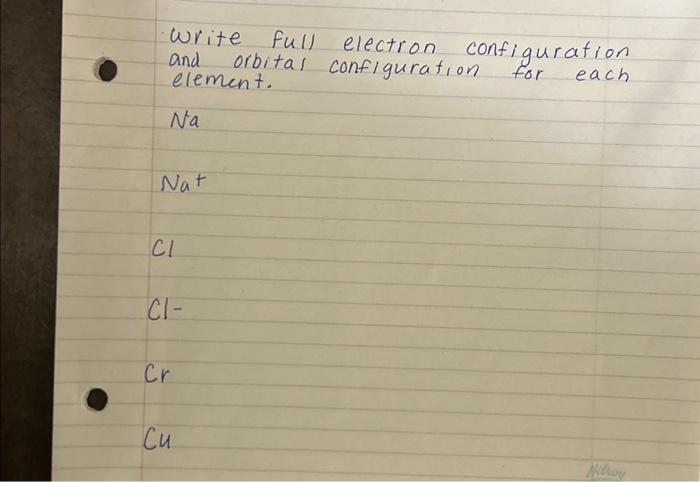 write full electron configuration
and orbital configuration for each
element.
Na
Na+
Cl
Cl-
Cr
Cu
Hilroy